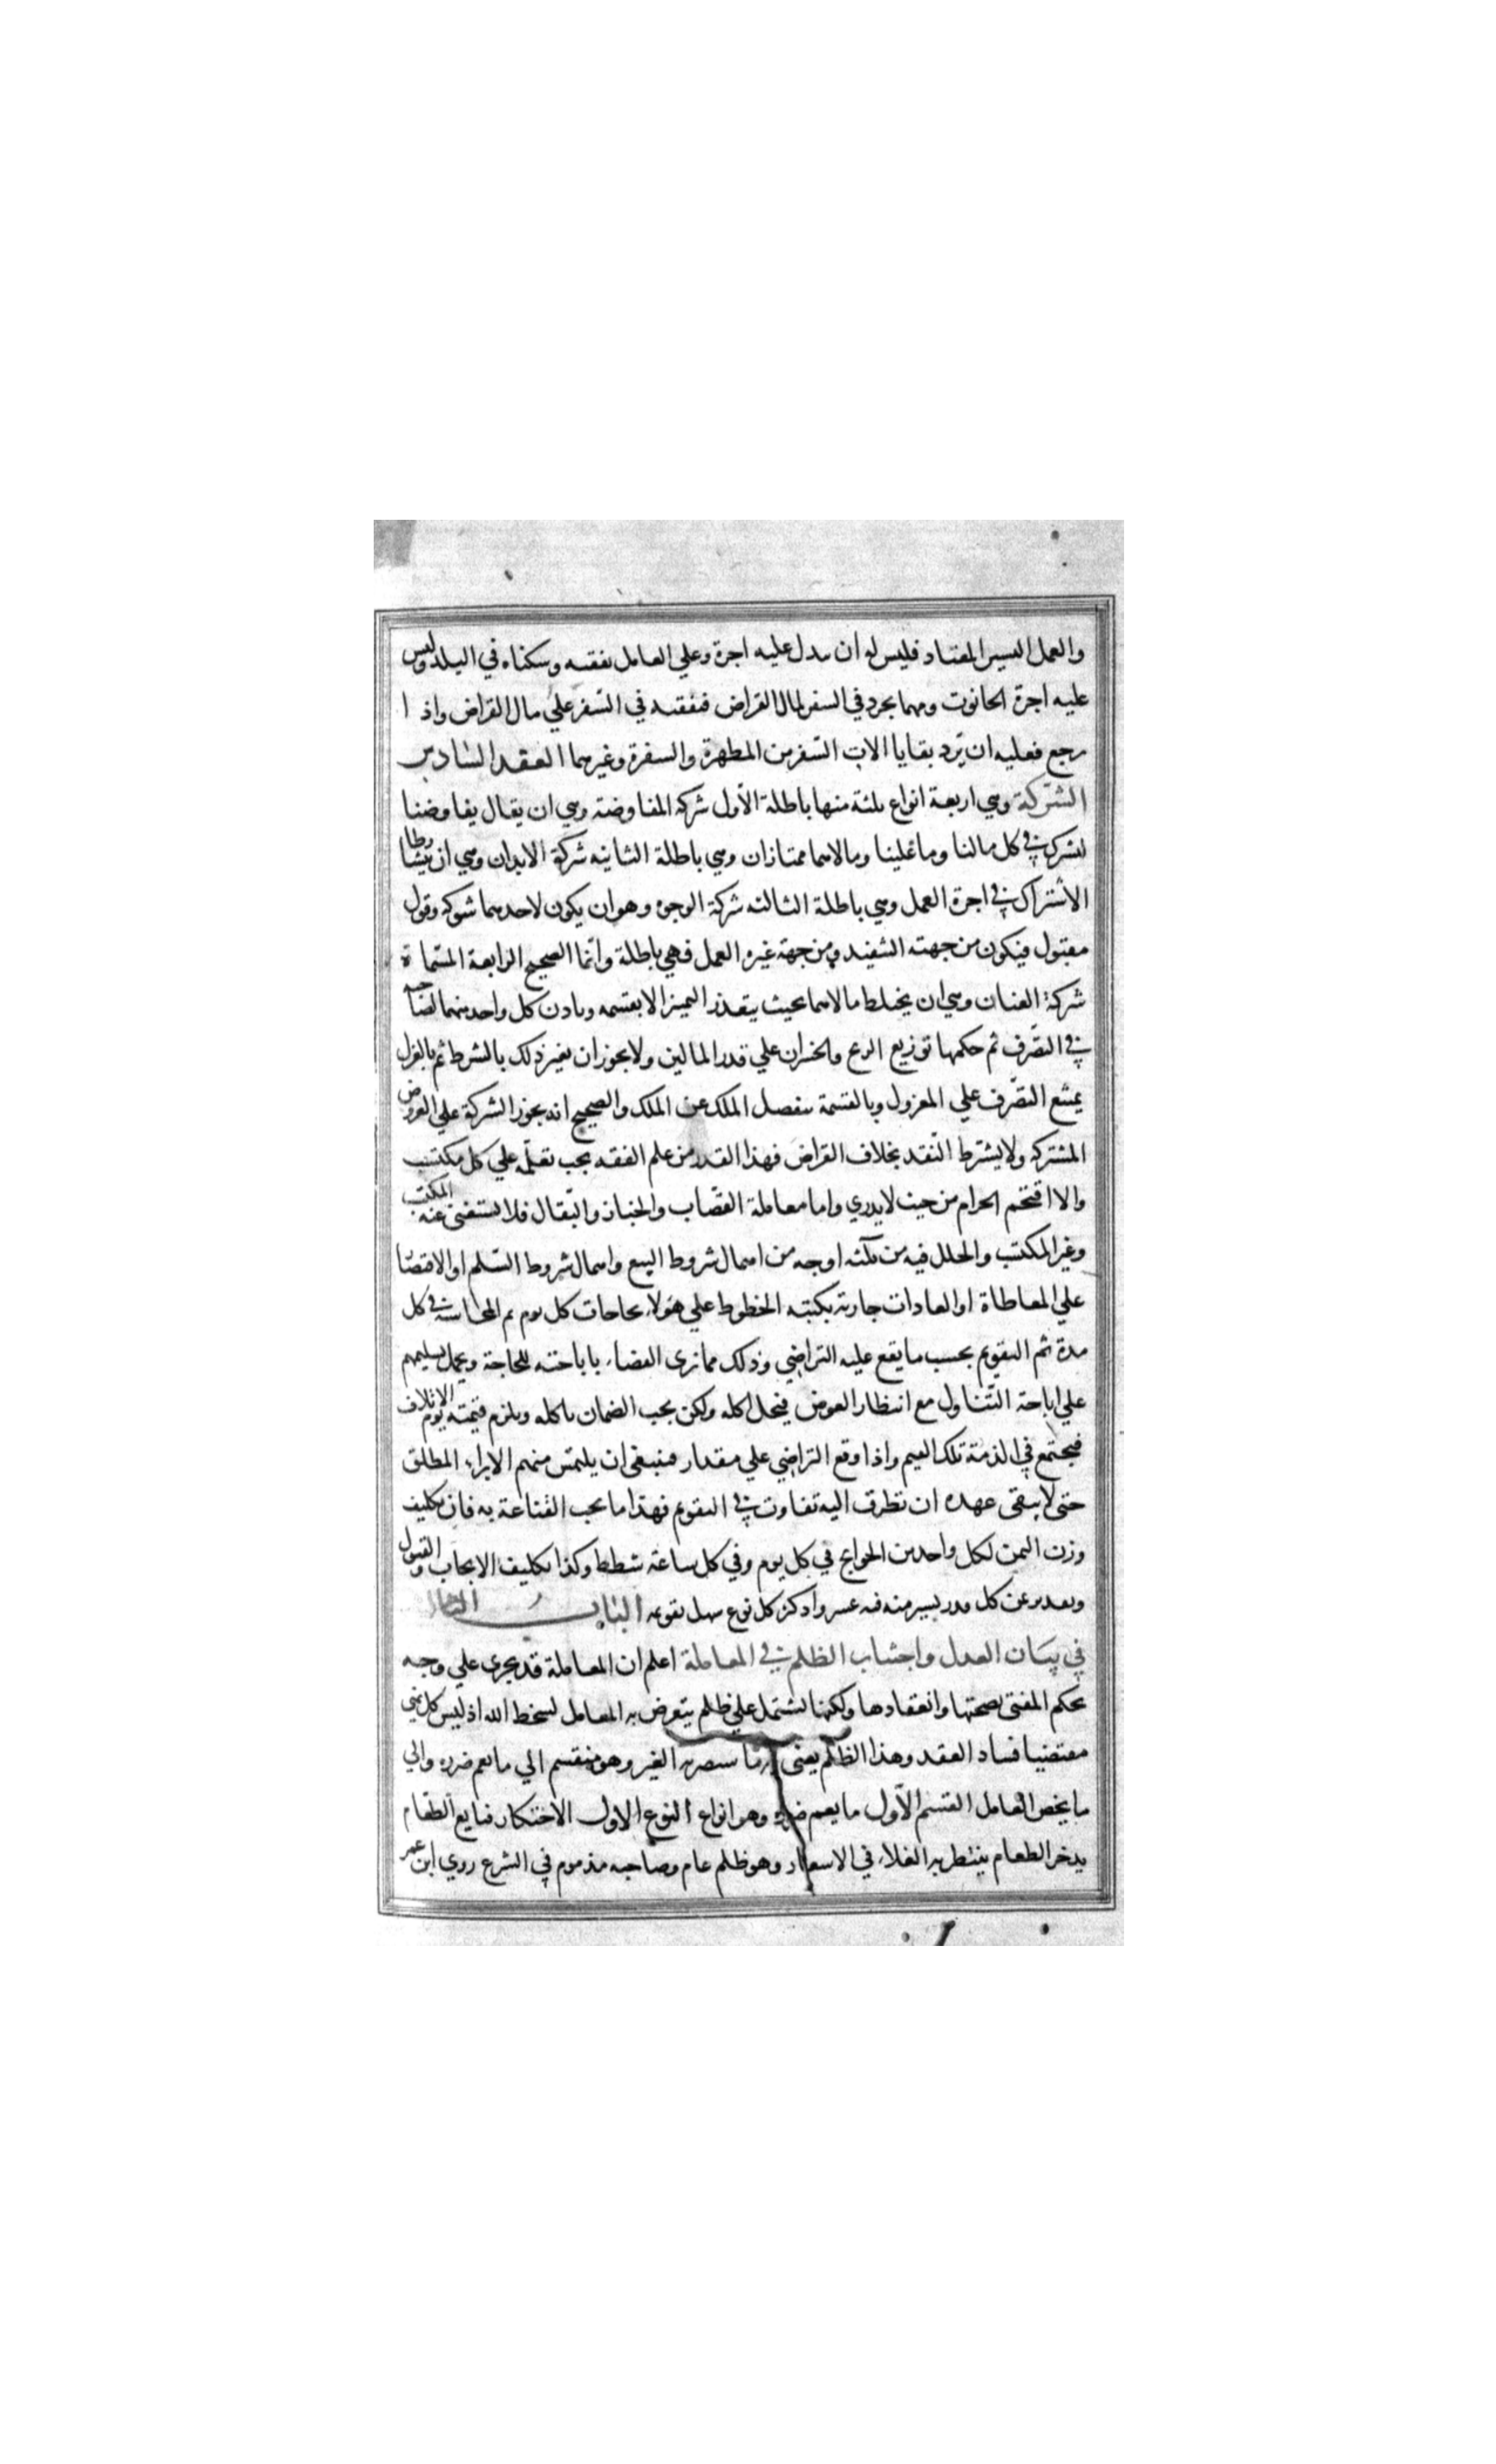 والعمل اليسير المعتاد فليس له ان يبدل عليه اجرة وعلي العامل نفقته وسكناه في البلد وليس
عليه اجرة الحانوت ومهما تجرد في السفر لمال القراض فنفقته في السّفر علي مال القراض واذا
رجع فعليه ان يّرد بقايا الات السّفر من المطهرة والسفرة وغيرهما العقد السّادس
الشّركة وهي اربعة انواع ثلثة منها باطلة الاوّل شركة المفاوضة وهي ان يقال يفاوضنا
لنشترك في كل مالنا وما علينا ومالاهما ممتازان وهي باطلة الثانيه شركة الابدان وهي ان يتشارطا
الاشتراك في اجرة العمل وهي باطلة الثالثه شركة الوجوه وهو ان يكون لاحدهما شوكه وقول
مقبول فيكون من جهته التنفيذ ومن جهة غيره العمل فهي باطلة وانّما الصحيح الرابعة المسّماة
شركة العنان وهي ان يختلط مالاهما بحيث يتعذر التمييز الا بقسمه وياذن كل واحد منهما لصاحبه
في التصّرف ثم حكمها توزيع الربح والخسران علي قدر المالين ولا يجوز ان يغير ذلك بالشرط ثم بالعزل
يمتنع التصّرف علي المعزول وبالقسمة ينفصل الملك عن الملك والصحيح انه يجوز الشركة علي العروض
المشتركه ولا يشترط النّقد بخلاف القراض فهذا القدر من علم الفقه يجب تعلّمه علي كل مكتسب
والا اقتحم الحرام من حيث لا يدري واما معاملة القصّاب والخباز والبّقال فلا يستغنى عنه المكتسب
وغير المكتسب والخلل فيه من ثلثه اوجه من اهمال شروط البيع واهمال شروط السّلم او الاقتصا
علي المعاطاة او العادات جارية بكتبه الخطوط علي هؤلاء بحاجات كل يوم ثم المحاسبه في كل
مدة ثم التقويم بحسب ما يقع عليه التراضي وذلك مما نرى القضاء باباحته للحاجة ويحمل تسليمهم
علي اباحة التّناول مع انتظار العوض فيحل اكله ولكن يجب الضمان باكله ويلزم قيمته يوم الاتلاف
فيجتمع في الذمّة تلك القيم واذا وقع التراضي علي مقدار فينبغي ان يلتمس منهم الابراء المطلق
حتى لا يبقى عهده ان تطرق اليه تفاوت في التقويم فهذا ما يجب القناعة به فان تكليف
وزن الثمن لكل واحد من الحوايج في كل يوم وفي كل ساعة شطط وكذا تكليف الايجاب والقبول
وتقدير عن كل قدر يسير منه فيه عسر واذ كثر كل نوع سهل تقويمه الباب الثالث
في بيان العدل واجتناب الظلم في المعاملة اعلم ان المعاملة قد يجرى علي وجه
يحكم المفتى بصحتها وانعقادها ولكنها تشتمل علي ظلم يتعرض به المعامل لسخط الله اذ ليس كل نهي
مقتضيا فساد العقد وهذا الظلم يعنى به ما يستضر به الغير وهو منقسم الي ما يعم ضرره والي
ما يخص العامل القسم الاوّل ما يعم ضرره وهو انواع النوع الاول الاحتكار فبايع الطّعام
يدخر الطعام ينتظر به الغلاء في الاسعار وهو ظلم عام وصاحبه مذموم في الشرع روي ابن عمر